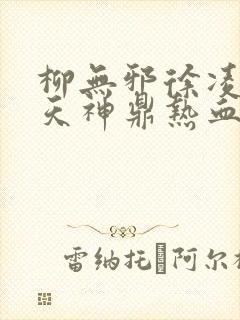 柳無邪徐凌
天神鼎熱血
雷纳托·阿尔